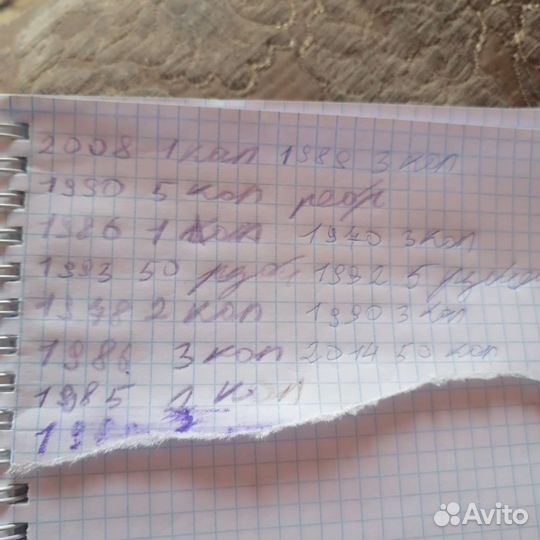 2008 1 коп 1989 3 коп
1990 5 коп
1986 1 коп 1970 3 коп
1993 50 руб 1992 5 рублей
2 коп 1990 3 коп
3 коп 2014 50 коп
1985 1 коп
Avito